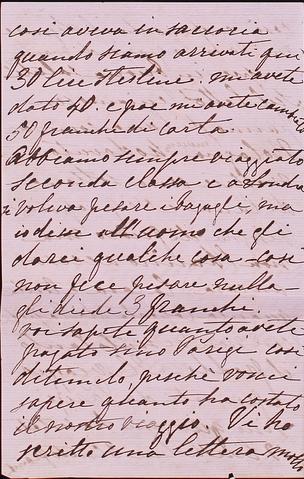 così aveva in saccocia
quando siamo arrivati qui
30 lire sterline. mi avete
dato 40. e poi mi avete cambiati
50 franchi di carta.
Abbiamo sempre viaggiato
seconda classe e a Londra
si voleva pesare i bagagli, ma
io dissi all'uomo che gli
darei qualche cosa - così
non fece pesare nulla -
gli diedi 3 franchi.
voi sapete quanto avete
pagato sino Parigi così
ditemelo, perché vorrei
sapere quanto ha costato
il nostro viaggio. Vi ho
scritto una lettera molto